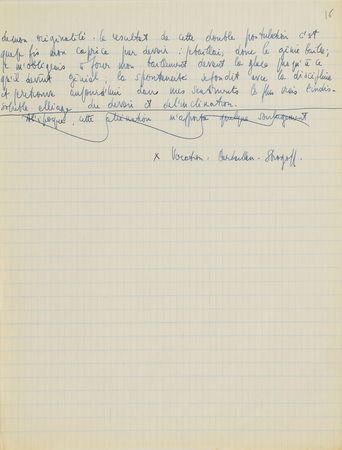 16
de mon originalité. Le résultat de cette double postulation c'est
que je fis mon caprice par devoir : j'étais, donc le génie
je m'obligeais à jouer mon devant la glace jusqu'à ce
qu'il devînt génial ; la spontanéité se fondit avec la discipline
et je retrouve aujourd'hui dans mes sentiments le plus vrais l'indis-
soluble alliage du devoir et de l'inclination.
A l'époque, cette aliénation m'apporta quelque soulagement
x Vocation. Pardaillan - Strogoff.